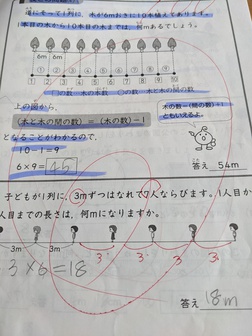 道にそって1列に 木が6mおきに10本植えてあります。
1本目の木から10本目の木までは 何mあるでしょう。
6m 6m
① ② ③ ④ ⑤ ⑥ ⑦ ⑧ ⑨
1 2 3 4 5 6 7 8 9 10
木の本数 木と木の間の数
上の図から、
(木と木の間の数)=(木の数)-1
となることがわかるので、
木の数-(間の数)=1
ともいえるよ。
10-1=9
6×9=
答え 54m
子どもが1列に、3mずつはなれて7人ならびます。1人目か
人目までの長さは、何mになりますか。
3m 3m 3 3 3 3
3×6=18
答え 18m